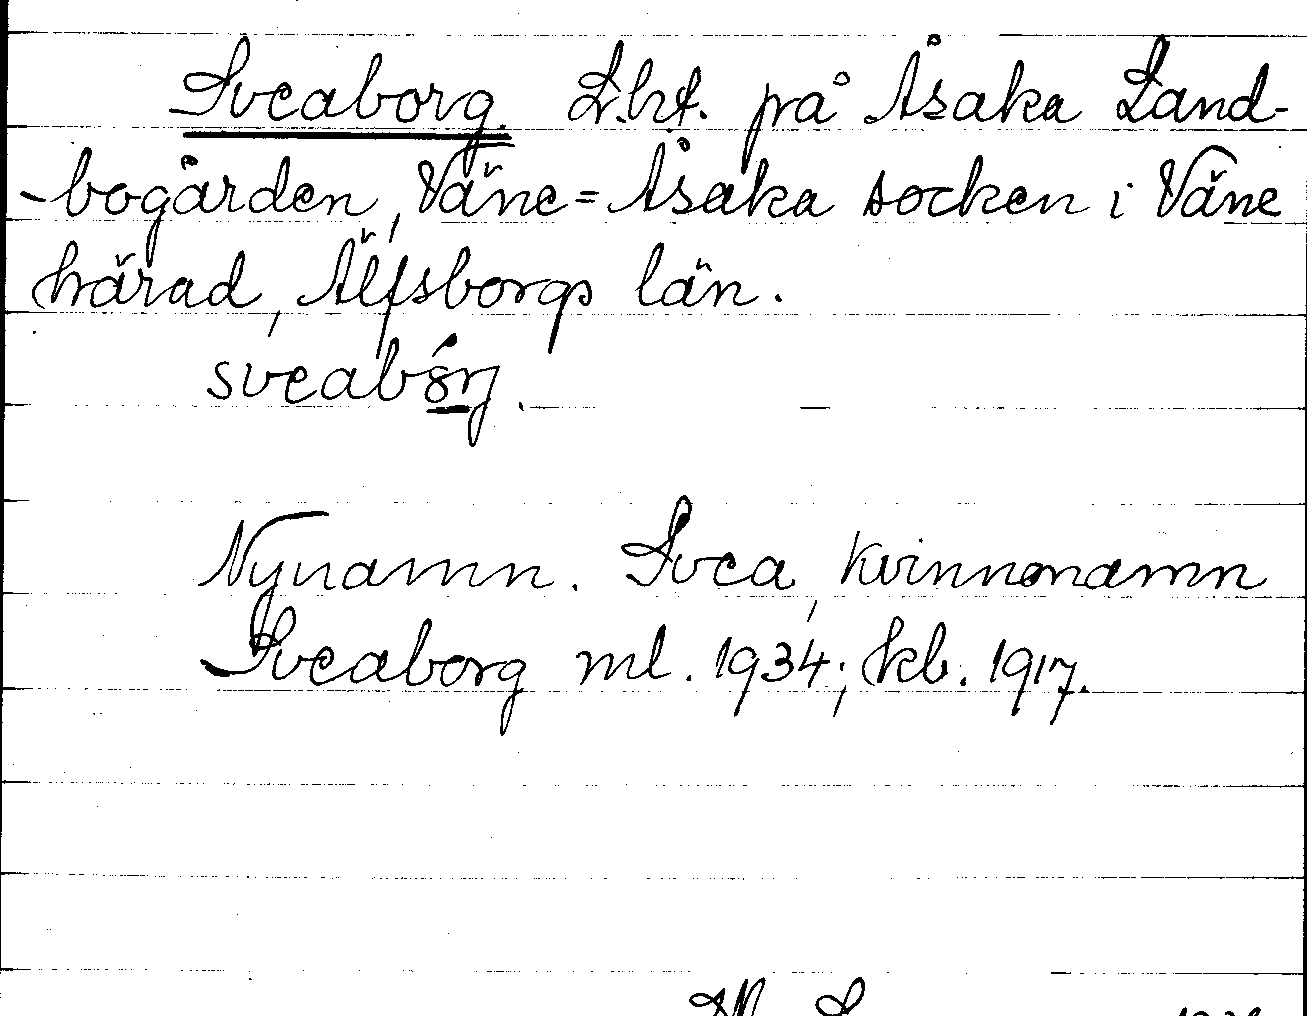 Sveaborg. Lht. på Åsaka Land-
-bogården, Väne=Åsaka socken i Väne
härad, Älfsborgs län.
Nynamn. Svea, kvinnonamn
Sveaborg ml. 1934; kb. 1917.